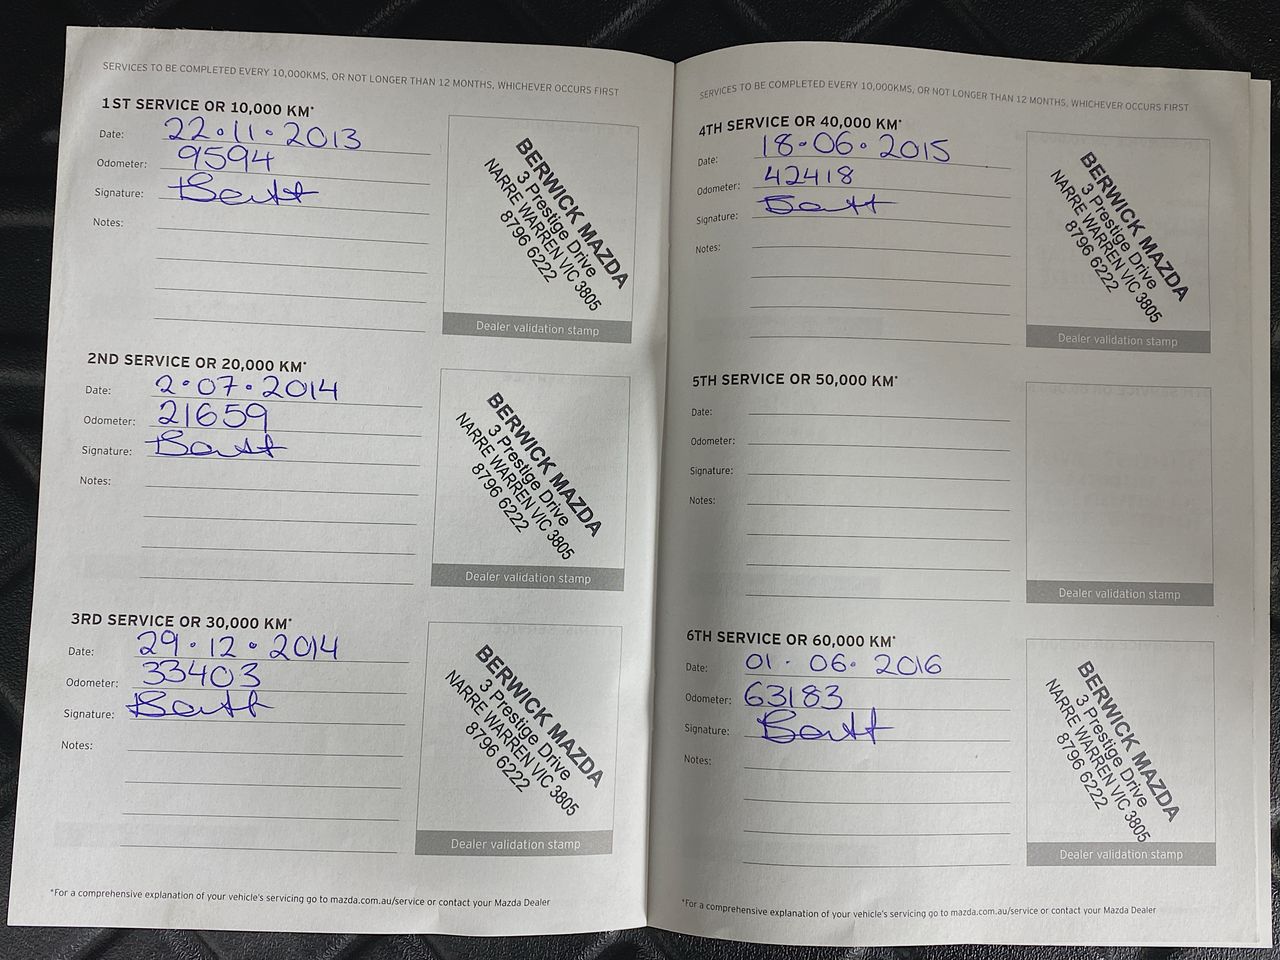 SERVICES TO BE COMPLETED EVERY 10,000KMS, OR NOT LONGER THAN 12 MONTHS, WHICHEVER OCCURS FIRST
1ST SERVICE OR 10,000 KM*
Date: 22·11·2013
Odometer: 9594
Signature:
Notes:
BERWICK MAZDA
3 Prestige Drive
NARRE WARREN VIC 3805
8796 6222
Dealer validation stamp
2ND SERVICE OR 20,000 KM*
Date: 2·07·2014
Odometer: 21659
Signature:
Notes:
BERWICK MAZDA
3 Prestige Drive
NARRE WARREN VIC 3805
8796 6222
Dealer validation stamp
3RD SERVICE OR 30,000 KM*
Date: 29·12·2014
Odometer: 33403
Signature:
Notes:
BERWICK MAZDA
3 Prestige Drive
NARRE WARREN VIC 3805
8796 6222
Dealer validation stamp
*For a comprehensive explanation of your vehicle's servicing go to mazda.com.au/service or contact your Mazda Dealer
SERVICES TO BE COMPLETED EVERY 10,000KMS, OR NOT LONGER THAN 12 MONTHS, WHICHEVER OCCURS FIRST
4TH SERVICE OR 40,000 KM*
Date: 18·06·2015
Odometer: 42418
Signature:
Notes:
BERWICK MAZDA
3 Prestige Drive
NARRE WARREN VIC 3805
8796 6222
Dealer validation stamp
5TH SERVICE OR 50,000 KM*
Date:
Odometer:
Signature:
Notes:
Dealer validation stamp
6TH SERVICE OR 60,000 KM*
Date: 01·06·2016
Odometer: 63183
Signature:
Notes:
BERWICK MAZDA
3 Prestige Drive
NARRE WARREN VIC 3805
8796 6222
Dealer validation stamp
*For a comprehensive explanation of your vehicle's servicing go to mazda.com.au/service or contact your Mazda Dealer